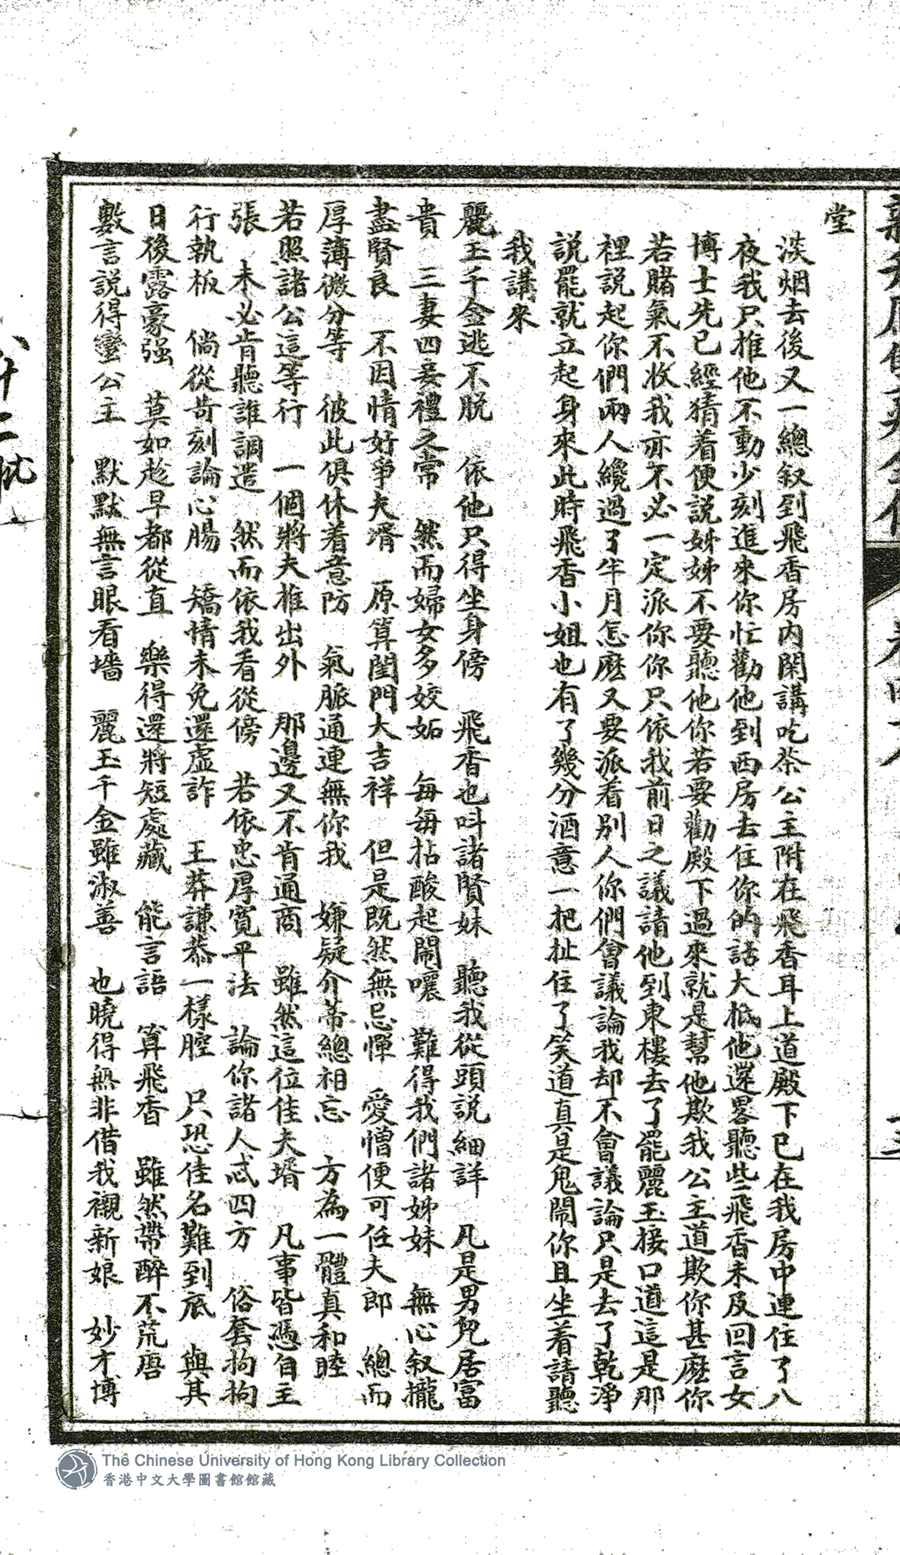 堂
淡烟去後又一總叙到飛香房内閑講吃茶公主附在飛香耳上道殿下已在我房中連住了八
夜我只推他不動少刻進來你忙勸他到西房去住你的話大柢他還畧聽些飛香未及回言女
博士先已經猜着便說姊姊不要聽他你若要勸殿下過來就是幫他欺我公主道欺你甚麽你
若賭氣不收我亦不必一定派你你只依我前日之議請他到東樓去了罷麗玉接口道這是那
裡說起你們兩人纔過了半月怎麽又要派着別人你們會議論我却不會議論只是去了乾淨
說罷就立起身來此時飛香小姐也有了幾分酒意一把扯住了笑道真是鬼鬧你且坐着請聽
我講來
麗玉千金逃不脫　依他只得坐身傍　飛香也叫諸賢妹　聽我從頭說細詳　凡是男兒居富
貴　三妻四妾禮之常　然而婦女多姣妬　每每拈酸起鬧嚷　難得我們諸姊妹　無心叙攏
盡賢良　不因情好爭夫壻　原算閨門大吉祥　但是既然無忌憚　愛憎便可任夫郎　總而
厚薄微分等　彼此俱休着意防　氣脈通連無你我　嫌疑介蒂總相忘　方為一體真和睦
若照諸公這等行　一個將夫推出外　那邊又不肯通商　雖然這位佳夫壻　凡事皆憑自主
張　未必肯聽誰調遣　然而依我看從傍　若依忠厚寬平法　論你諸人忒四方　俗套拘拘
行執板　倘從苛刻論心腸　矯情未免還虛詐　王莽謙恭一樣腔　只恐佳名難到底　與其
日後露豪强　莫如趁早都從直　樂得還將短處藏　能言語　算飛香　雖然帶醉不荒唐
數言說得鸞公主　默默無言眼看墻　麗玉千金雖淑善　也曉得無非借我襯新娘　妙才博
The Chinese University of Hong Kong Library Collection
香港中文大學圖書館館藏